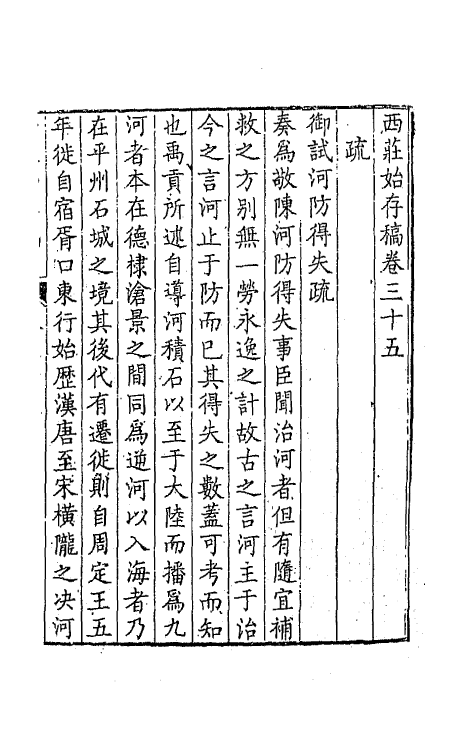 西莊始存稿卷三十五
疏
御試河防得失疏
奏爲敬陳河防得失事臣聞治河者但有隨宜補
救之方别無一勞永逸之計故古之言河主于治
今之言河止于防而已其得失之數蓋可考而知
也禹貢所述自導河積石以至于大陸而播爲九
河者本在德棣滄景之間同爲逆河以入海者乃
在平州石城之境其後代有遷徙則自周定王五
年徙自宿胥口東行始歴漢唐至宋橫隴之决河